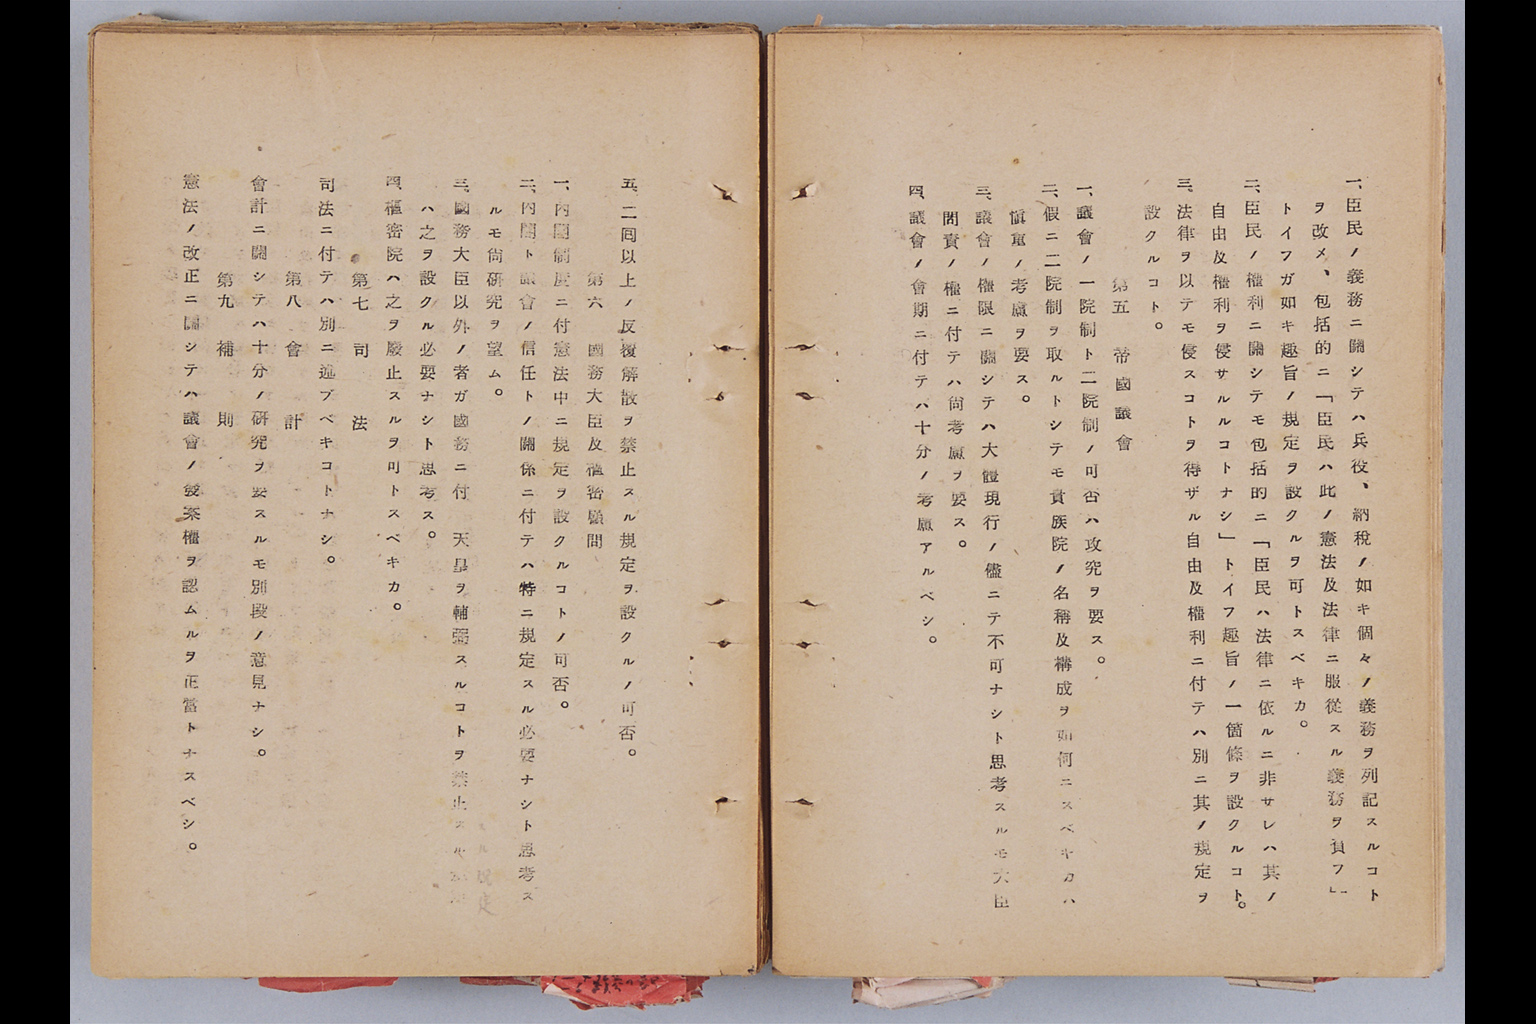 一、臣民ノ義務ニ關シテハ兵役、納稅ノ如キ個々ノ義務ヲ列記スルコト
ヲ改メ、包括的ニ「臣民ハ此ノ憲法及法律ニ服從スル義務ヲ負フ」
トイフガ如キ趣旨ノ規定ヲ設クルヲ可トスベキカ。
二、臣民ノ權利ニ關シテモ包括的ニ「臣民ハ法律ニ依ルニ非サレハ其ノ
自由及權利ヲ侵サルルコトナシ」トイフ趣旨ノ一箇條ヲ設クルコト。
三、法律ヲ以テモ侵スコトヲ得ザル自由及權利ニ付テハ別ニ其ノ規定ヲ
設クルコト。
第五 帝國議會
一、議會ノ一院制ト二院制ノ可否ハ攻究ヲ要ス。
二、假ニ二院制ヲ取ルトシテモ貴族院ノ名稱及構成ヲ如何ニスベキカハ
愼重ノ考慮ヲ要ス。
三、議會ノ權限ニ關シテハ大體現行ノ儘ニテ不可ナシト思考スルモ大臣
問責ノ權ニ付テハ尙考慮ヲ要ス。
四、議會ノ會期ニ付テハ十分ノ考慮アルベシ。
五、二囘以上ノ反覆解散ヲ禁止スル規定ヲ設クルノ可否。
第六 國務大臣及樞密顧問
一、內閣制度ニ付憲法中ニ規定ヲ設クルコトノ可否。
二、內閣ト議會ノ信任トノ關係ニ付テハ特ニ規定スル必要ナシト思考ス
ルモ尙硏究ヲ望ム。
三、國務大臣以外ノ者ガ國務ニ付 天皇ヲ輔弼スルコトヲ禁止スル
規定
ハ之ヲ設クル必要ナシト思考ス。
四、樞密院ハ之ヲ廢止スルヲ可トスベキカ。
第七 司法
司法ニ付テハ別ニ述ブベキコトナシ。
第八 會計
會計ニ關シテハ十分ノ硏究ヲ要スルモ別段ノ意見ナシ。
第九 補則
憲法ノ改正ニ關シテハ議會ノ發案權ヲ認ムルヲ正當トナスベシ。